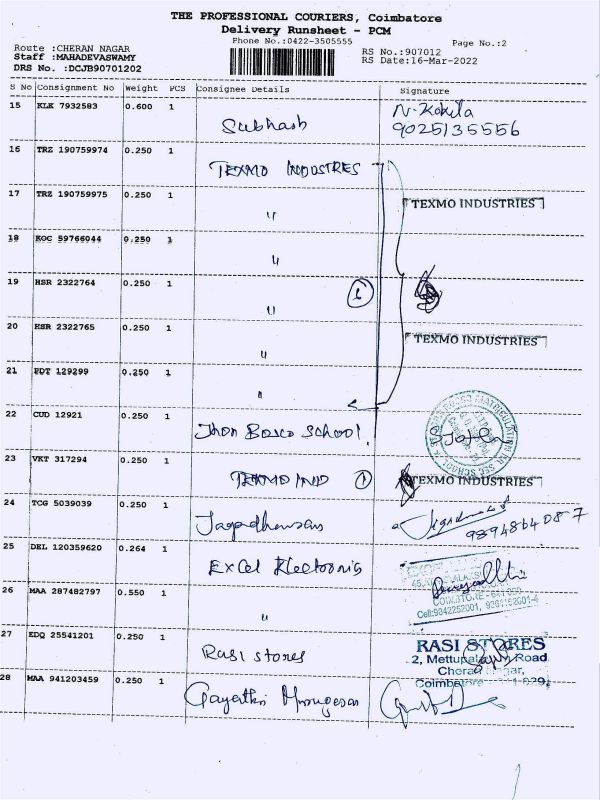 THE PROFESSIONAL COURIERS, Coimbatore
Delivery Runsheet - PCM
Phone No.:0422-3505555
Page No.:2
Route :CHERAN NAGAR
Staff :MAHADEVASWAMY
DRS No. :DCJB90701202
RS No.:907012
RS Date:16-Mar-2022
S No Consignment No Weight PCS Consignee Details Signature
15 KLK 7932583 0.600 1 Subhash N-Kokila
9025135556
16 TRZ 190759974 0.250 1 TEXMO INDUSTRES
17 TRZ 190759975 0.250 1 " TEXMO INDUSTRIES
18 KOC 59766044 0.250 1 "
19 HSR 2322764 0.250 1 " 6
20 HSR 2322765 0.250 1 " TEXMO INDUSTRIES
21 PDT 129299 0.250 1 "
22 CUD 12921 0.250 1 Jhon Bosco School.
23 VKT 317294 0.250 1 TEXMO IND 1 TEXMO INDUSTRIES
24 TCG 5039039 0.250 1
9894864087
25 DEL 120359620 0.264 1 Excel Electronis
26 MAA 287482797 0.550 1 "
COIMBATORE - 641 029
Cell:9842252001,
27 EDQ 25541201 0.250 1 Rasi stores RASI STORES
2, Mettupalayam Road
Cheran Nagar,
Coimbatore
28 MAA 941203459 0.250 1 Gayathri Murugesan